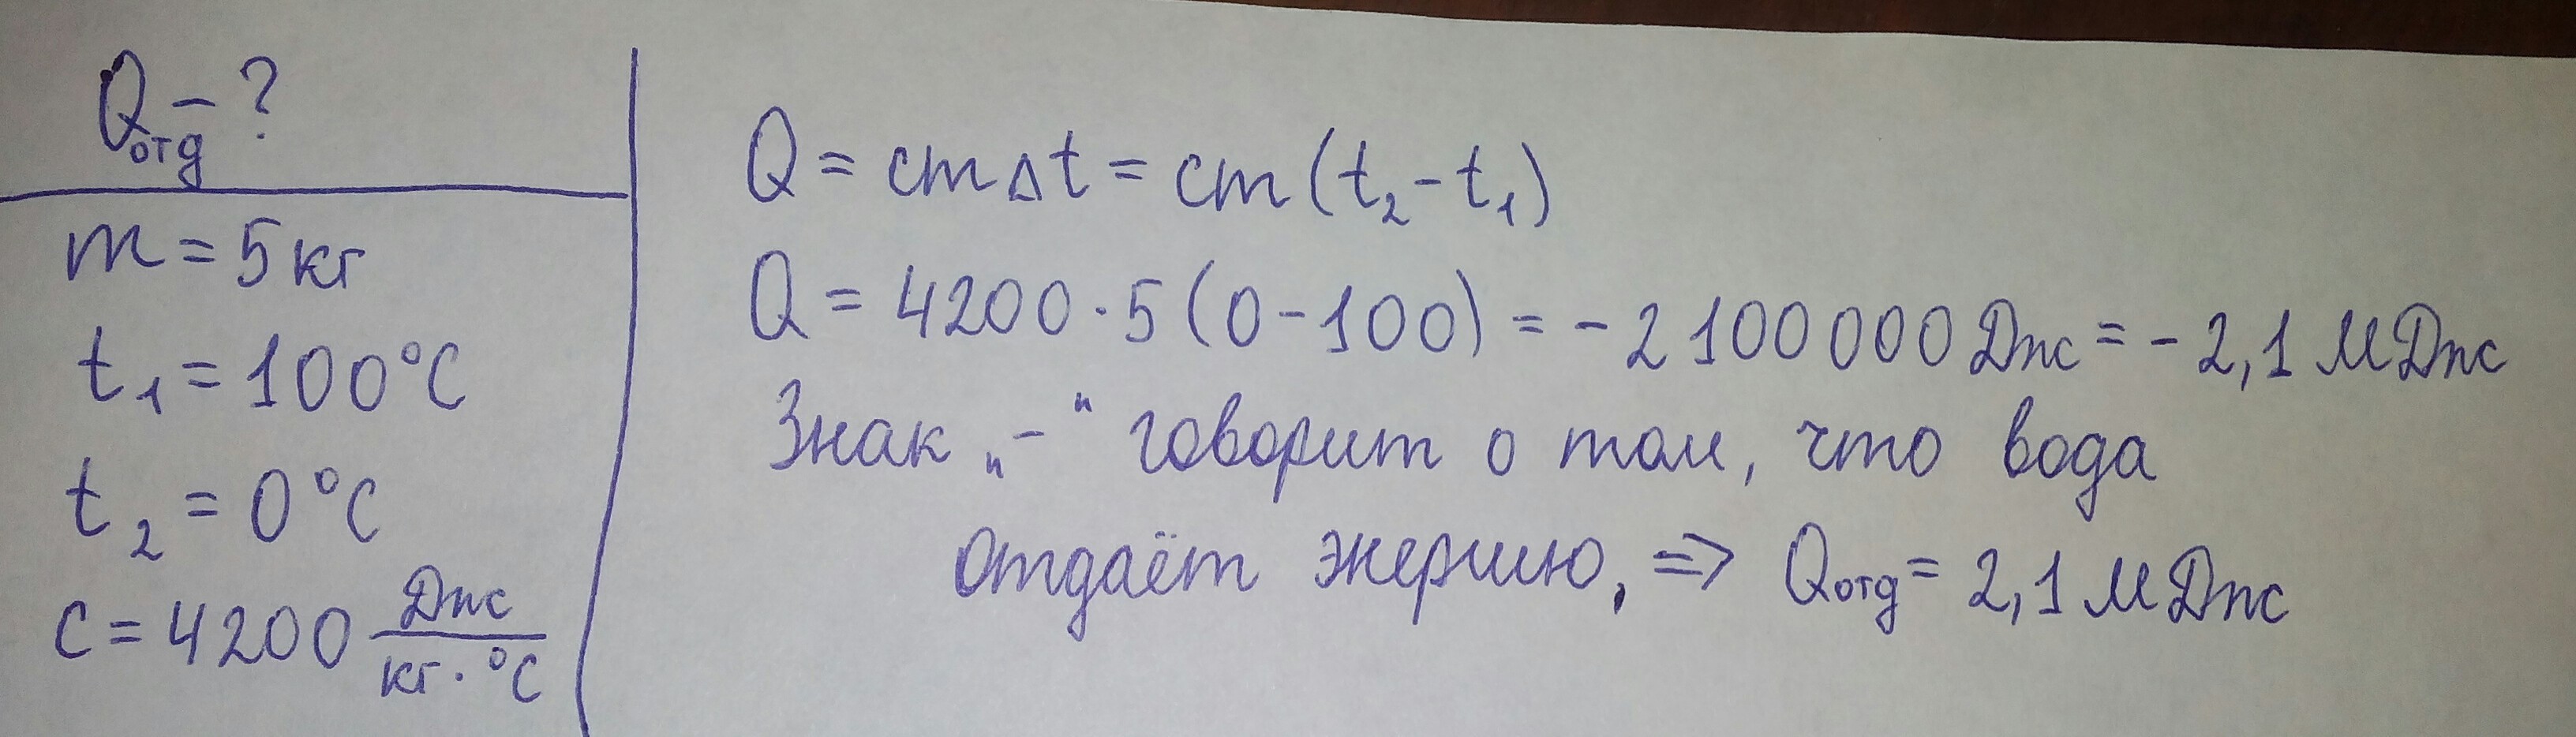 Qотд - ?
m = 5 кг
t₁ = 100°C
t₂ = 0°C
c = 4200 Дж/кг·°C
Q = cmΔt = cm(t₂ - t₁)
Q = 4200 · 5 (0 - 100) = - 2 100 000 Дж = - 2,1 МДж
Знак „-“ говорит о том, что вода
отдаёт энергию, => Qотд = 2,1 МДж